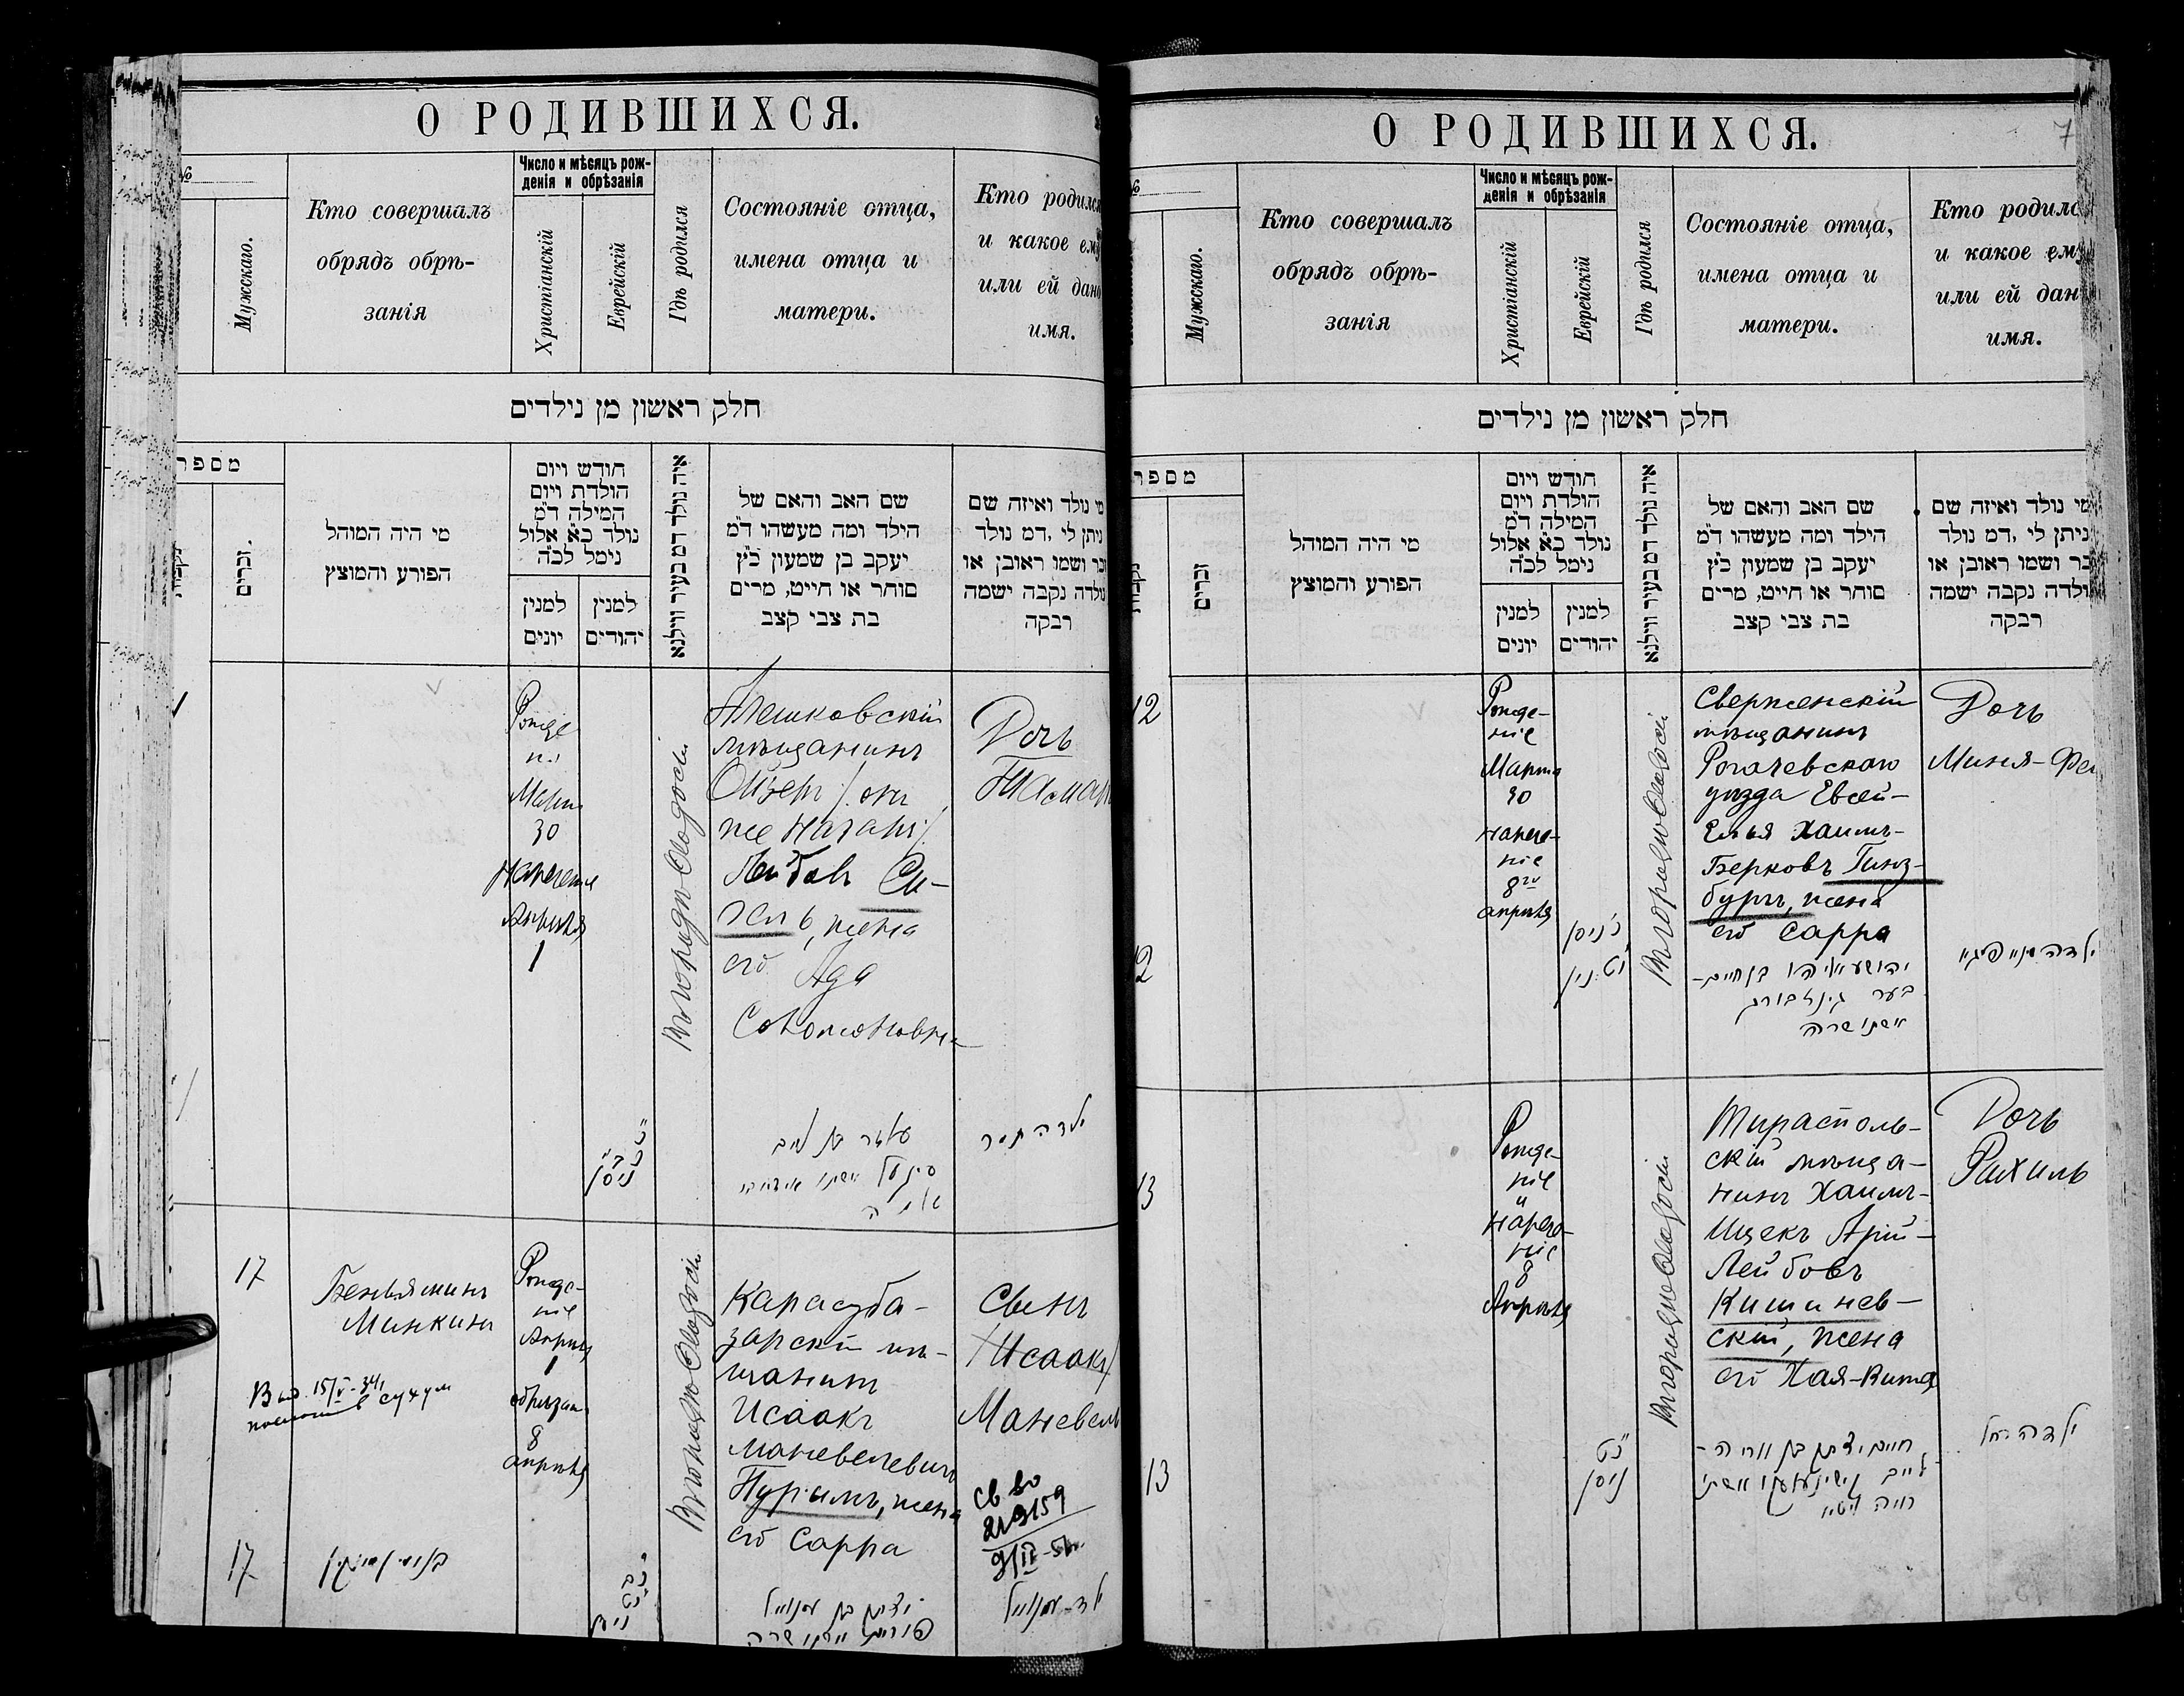 О РОДИВШИХСЯ.
№
Мужскаго.
Кто совершалъ
обрядъ обрѣ-
занія
Число и мѣсяцъ рож-
денія и обрѣзанія
Христіанскій
Еврейскій
Гдѣ родился
Состояніе отца,
имена отца и
матери.
Кто родилс
и какое ему
или ей дано
имя.
חלק ראשון מן נילדים
מספר
זכרים.
מי היה המוהל
הפורע והמוצץ
חודש ויום
הולדת ויום
המילה ד״מ
נולד כ״א אלול
נימל לכ״ה
למנין
יונים
למנין
יהודים
איה נולד דמ בעיר ווילנא
שם האב והאם של
הילד ומה מעשהו ד״מ
יעקב בן שמעון כ״ץ
סוחר או חייט, מרים
בת צבי קצב
מי נולד ואיזה שם
ניתן לי, דמ נולד
זכר ושמו ראובן או
נולדה נקבה ישמה
רבקה
30
Нареченіе
Апрѣля
1
Алешковскій
мѣщанинъ
Ойзеръ /: онъ
же Назаръ :/
Лейбовъ Си-
гель, жена
его Ада
Соломоновна
Дочь
Тамар
ניסן
ילדה תמר
17
Беньяминъ
Минкинъ
Рожде-
ніе
1
обрѣзан
8
апрѣля
Карасуба-
зарскій мѣ-
щанинъ
Исаакъ
Маневелевичъ
Пуримъ, жена
его Сарра
Сынъ
/Исаакъ/
Маневель
Св во
17
О РОДИВШИХСЯ.
7
№
Мужскаго.
Кто совершалъ
обрядъ обрѣ-
занія
Число и мѣсяцъ рож-
денія и обрѣзанія
Христіанскій
Еврейскій
Гдѣ родился
Состояніе отца,
имена отца и
матери.
Кто родилс
и какое ему
или ей дан
имя.
חלק ראשון מן נילדים
מספר
זכרים
מי היה המוהל
הפורע והמוצץ
חודש ויום
הולדת ויום
המילה ד״מ
נולד כ״א אלול
נימל לכ״ה
למנין
יונים
למנין
יהודים
איה נולד דמ בעיר ווילנא
שם האב והאם של
הילד ומה מעשהו ד״מ
יעקב בן שמעון כ״ץ
סוחר או חייט, מרים
בת צבי קצב
מי נולד ואיזה שם
ניתן לי, דמ נולד
זכר ושמו ראובן או
נולדה נקבה ישמה
רבקה
12
Рожде-
ніе
Марта
30
Нарече-
ніе
8го
апрѣля
Сверженскій
мѣщанинъ
Рогачевскаго
уѣзда Евсей-
Елья Хаимъ-
Берковъ Гинз-
бургъ, жена
его Сарра
Дочь
Миня-Фей
12
יהושע אליהו בן חיים-
בער גינזבורג
אשתו שרה
13
Рожде-
ніе
и
нарече-
ніе
8
Апрѣля
Тирасполь-
скій мѣща-
нинъ Хаимъ-
Ицекъ Арій-
Лейбовъ
Кишинев-
скій, жена
его Хая-Вита
Дочь
Рахиль
13
ניסן
ילדה רחל